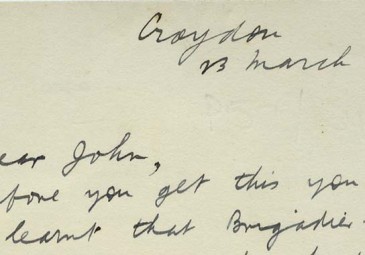 Croydon
13 March
ear John,
fore you get this you
learnt that Brigadier-